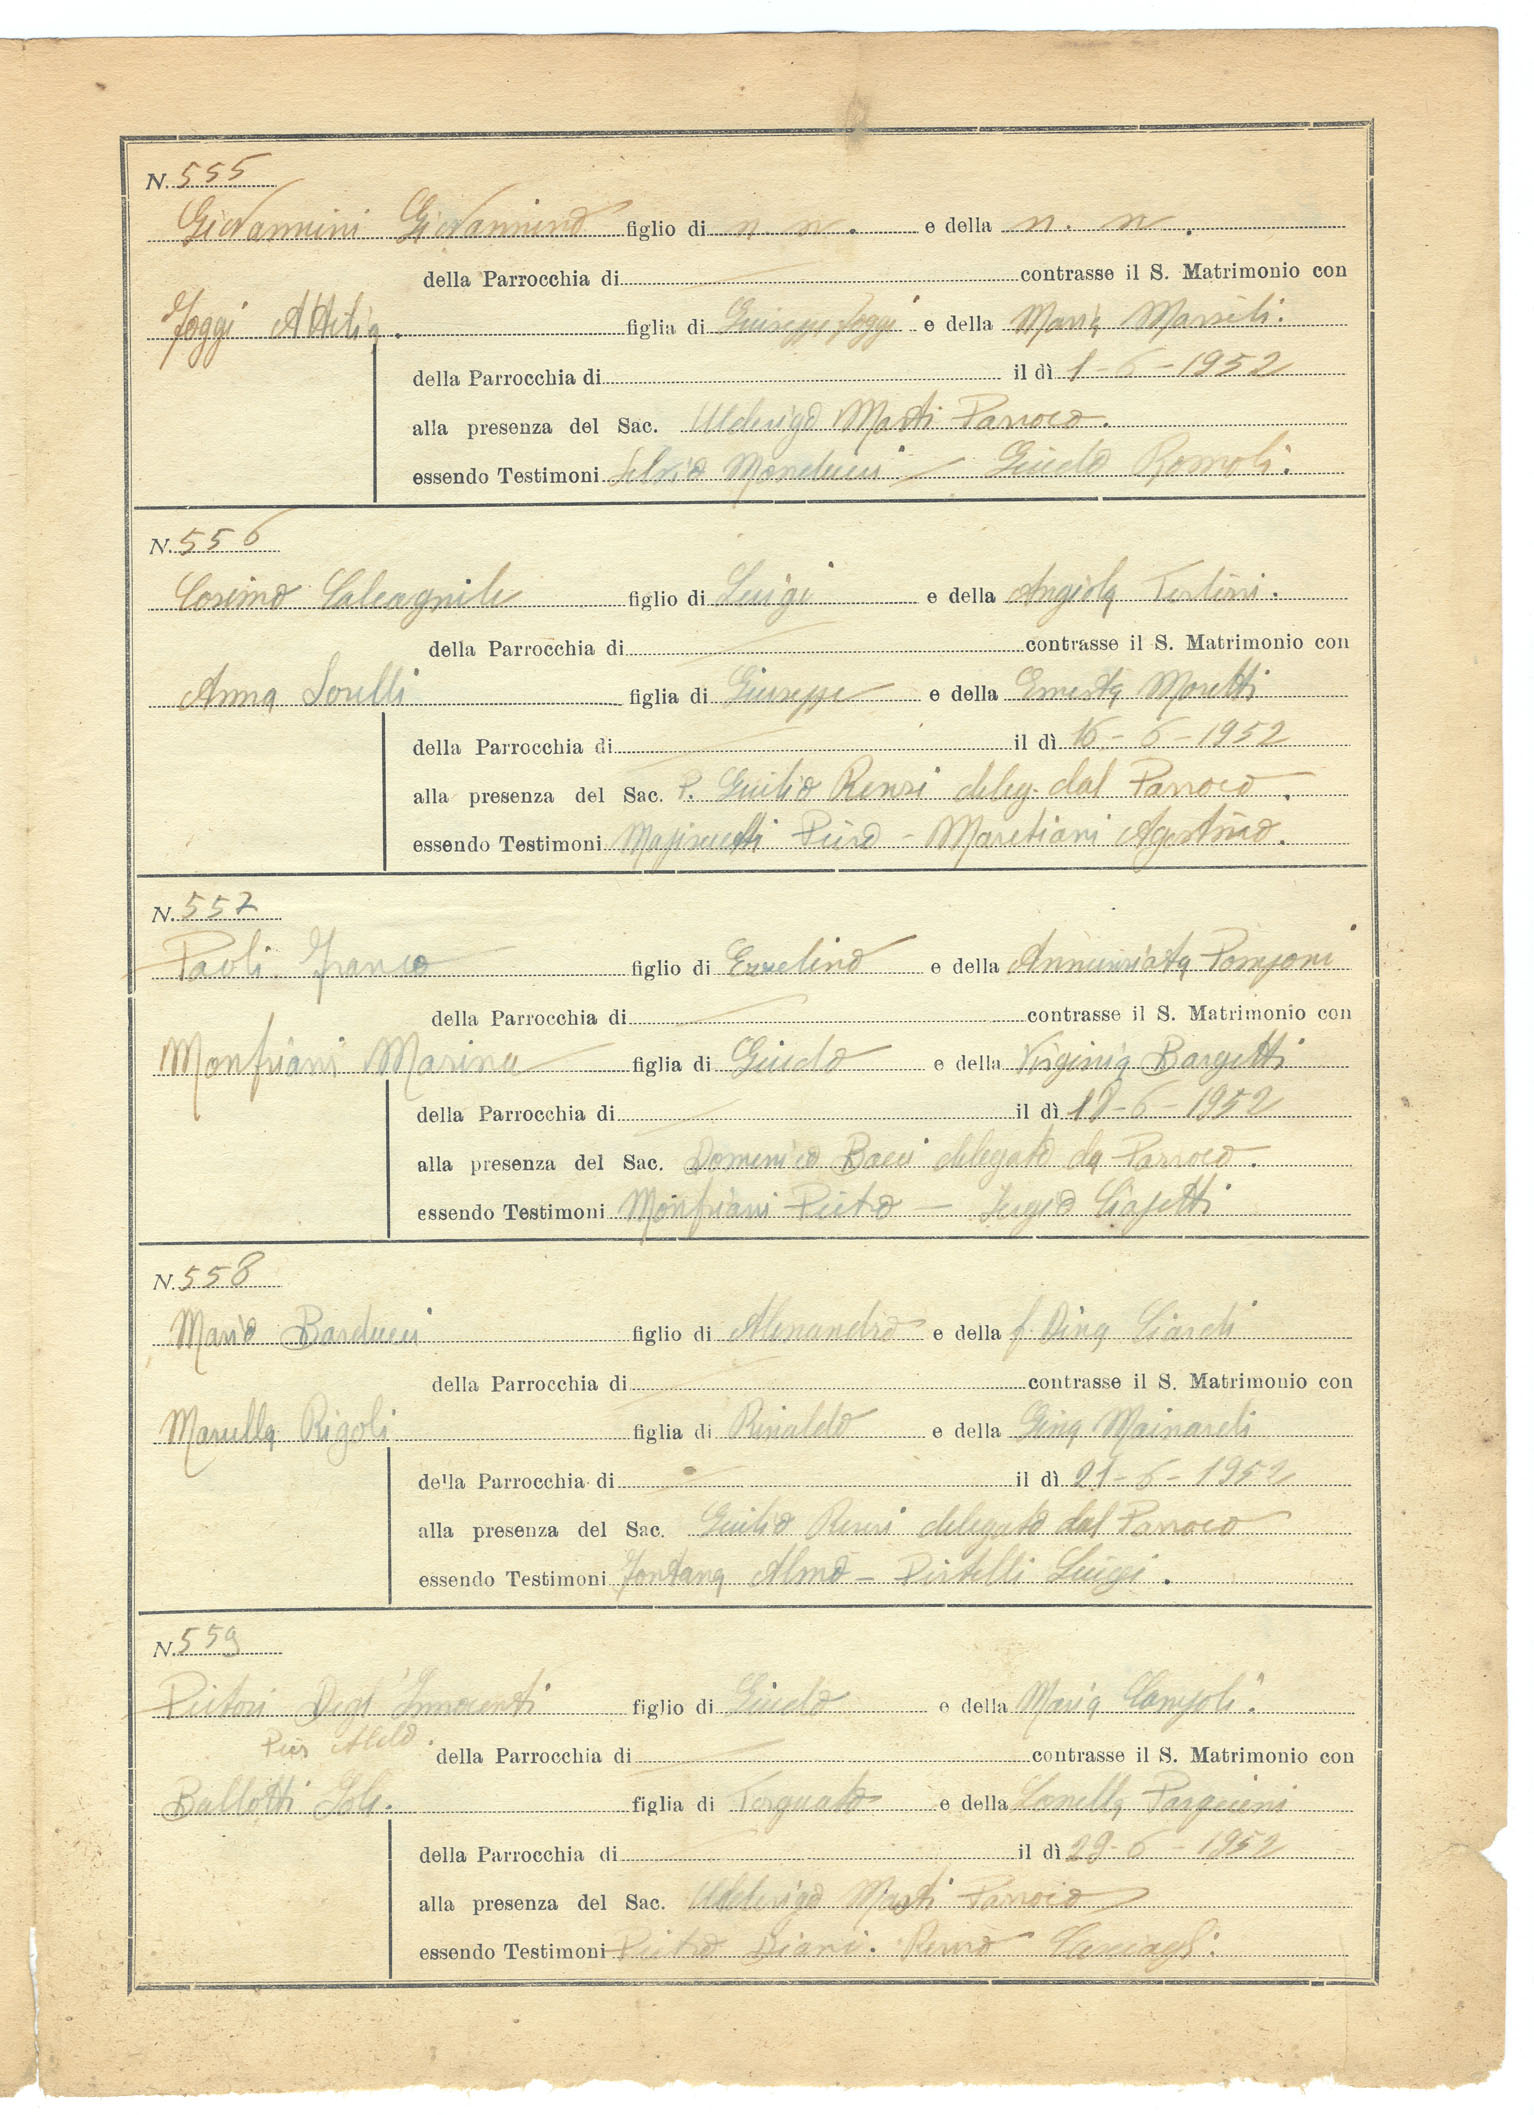 N. 555
Giovannini Giovannino figlio di n. n. e della n. n.
della Parrocchia di contrasse il S. Matrimonio con
Foggi Attilia. figlia di Giuseppe Foggi e della Maria Marsili.
della Parrocchia di il dì 1-6-1952
alla presenza del Sac. Ulderigo Marti Parroco.
essendo Testimoni Silvio Monducci Guido Romoli.
N. 556
Cosimo Calcagnile figlio di Luigi e della Angiola
della Parrocchia di contrasse il S. Matrimonio con
Anna Sorelli figlia di Giuseppe e della Ernesta Moretti
della Parrocchia di il dì 16-6-1952
alla presenza del Sac. P. Giulio Renzi deleg. dal Parroco.
essendo Testimoni Piero - Agostino.
N. 557
Paoli Franco figlio di Ezzelino e della Annunziata Pomponi
della Parrocchia di contrasse il S. Matrimonio con
Monfriani Marina figlia di Guido e della Virginia Bargetti
della Parrocchia di il dì 18-6-1952
alla presenza del Sac. Domenico Bacci delegato da Parroco.
essendo Testimoni Monfriani Pietro - Sergio
N. 558
Mario Barducci figlio di Alessandro e della f. Dina Ciardi
della Parrocchia di contrasse il S. Matrimonio con
Marcella Rigoli figlia di Rinaldo e della Gina Mainardi
della Parrocchia di il dì 21-6-1952
alla presenza del Sac. Giulio Renzi delegato dal Parroco
essendo Testimoni Fontana Almo - Pistelli Luigi.
N. 559
Degl'Innocenti figlio di Guido e della Maria Campoli.
Pier Aldo.
della Parrocchia di contrasse il S. Matrimonio con
Ballotti Iole. figlia di Torquato e della
della Parrocchia di il dì 29-6-1952
alla presenza del Sac. Ulderigo Marti Parroco
essendo Testimoni Pietro Diani. Renzo